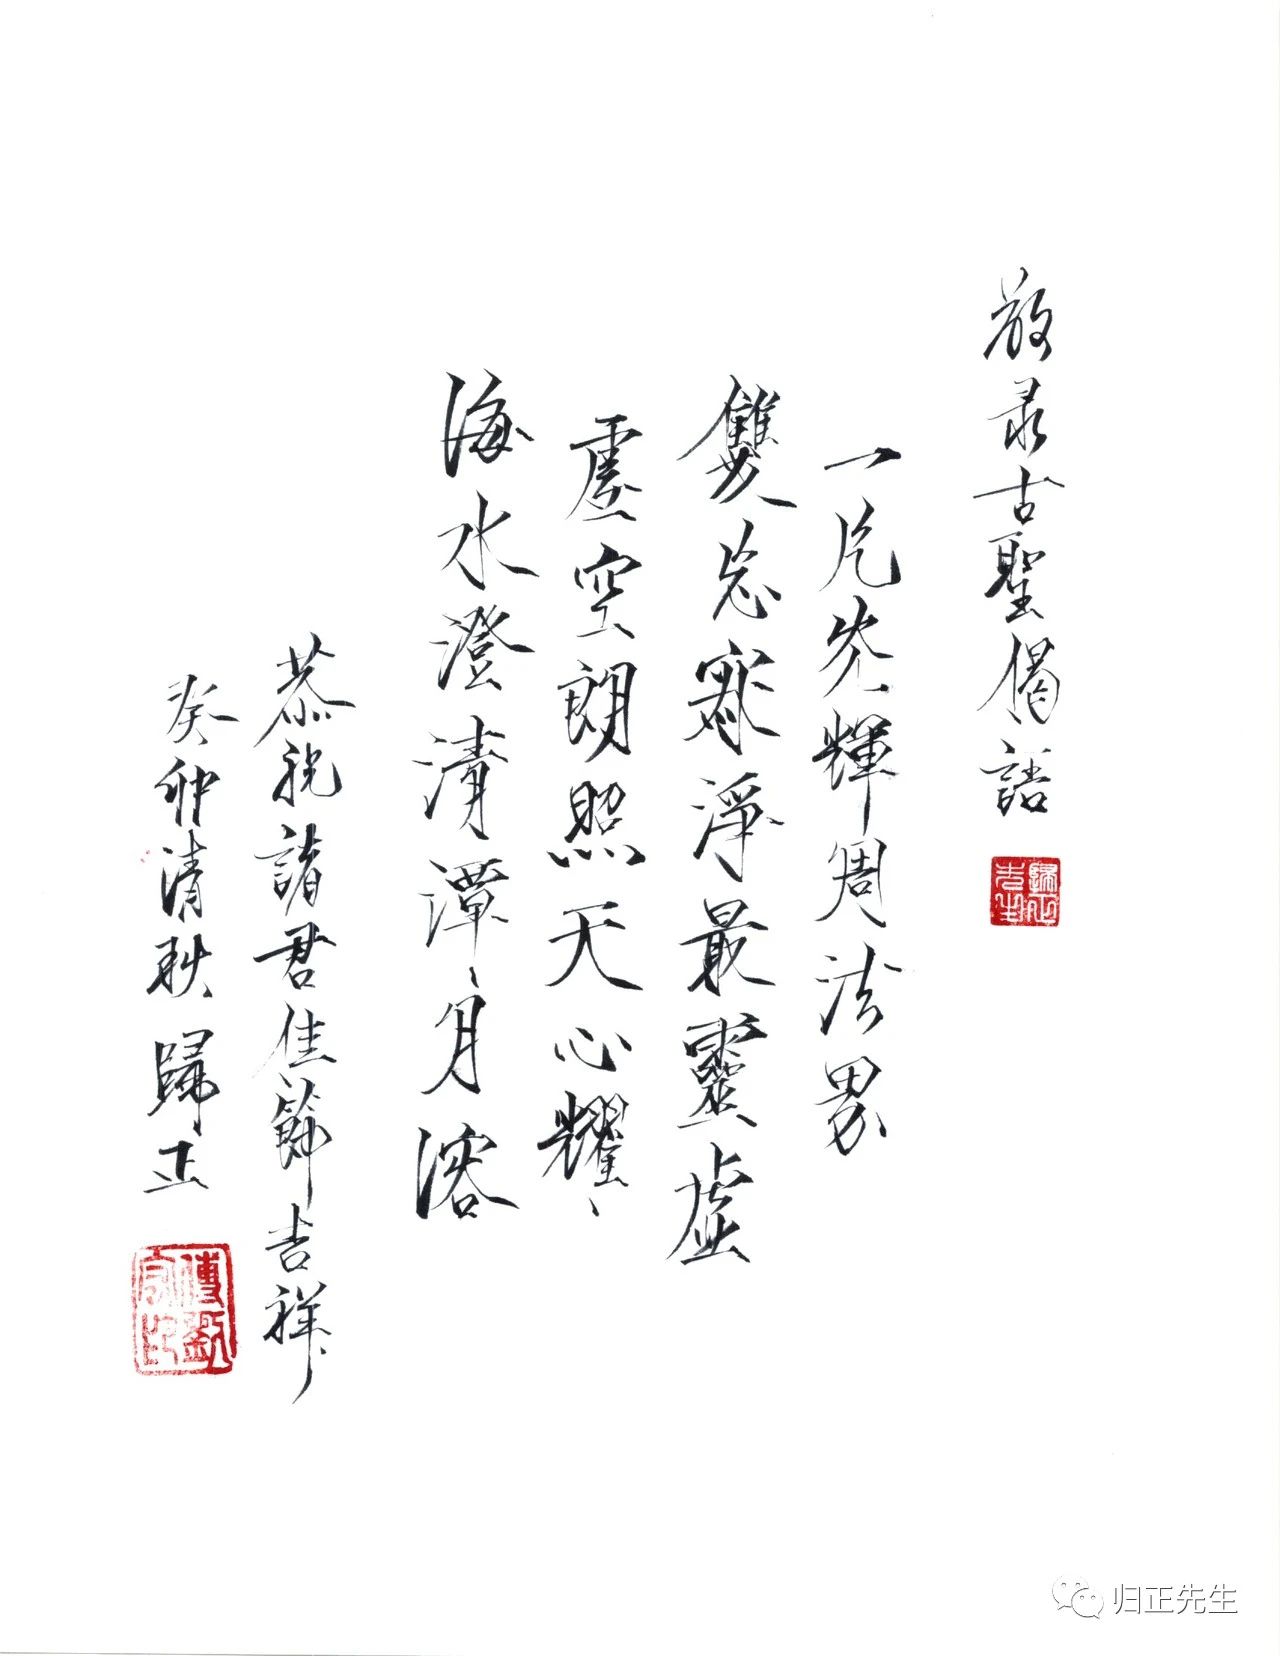 敬录古聖偈語
歸正先生
一片光輝周法界
雙忘寂淨最靈虛
虛空朗照天心耀
海水澄清潭月溶
恭祝諸君佳節吉祥
癸卯清秋歸正
归正先生